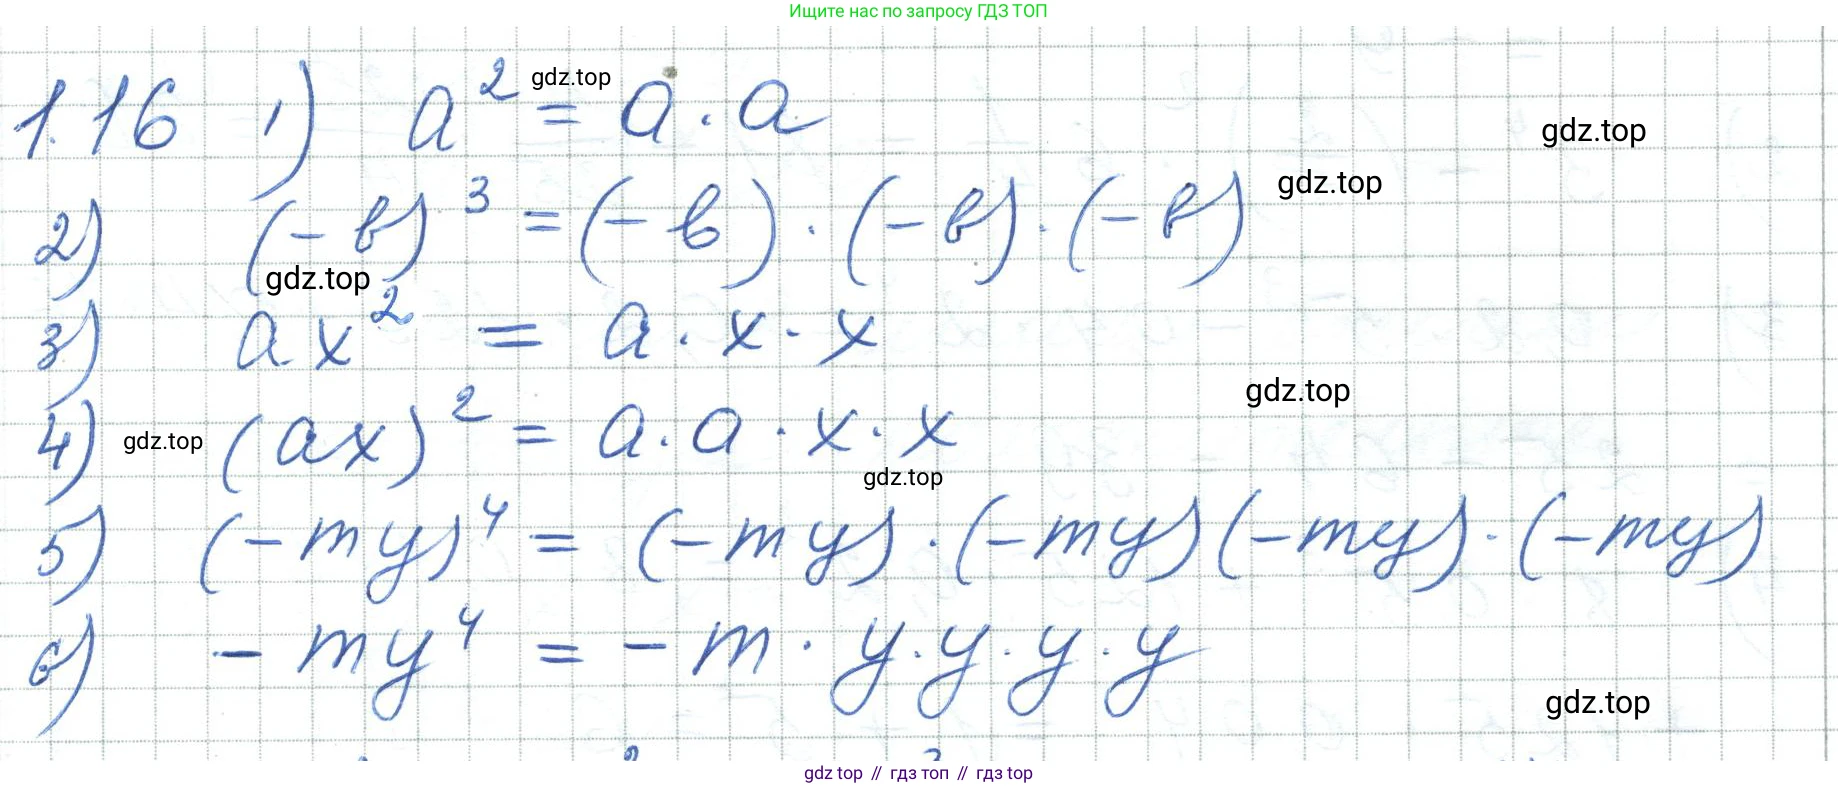 Ищите нас по запросу ГДЗ ТОП
1.16 1) a² = a · a
gdz.top
gdz.top
2) (-в)³ = (-в) · (-в) · (-в)
gdz.top
gdz.top
3) ax² = a · x · x
gdz.top
4) (ax)² = a · a · x · x
gdz.top
gdz.top
5) (-my)⁴ = (-my) · (-my)(-my) · (-my)
6) -my⁴ = -m · y · y · y · y
gdz.top
gdz top // гдз топ // гдз top